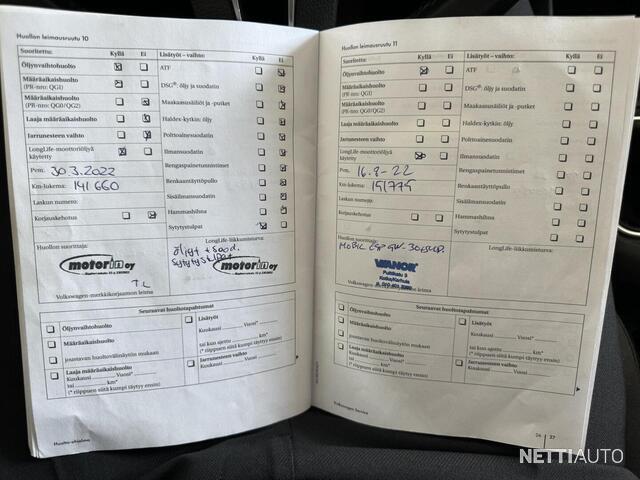 Huollon leimausruutu 10
Suoritettu: Kyllä Ei
Öljynvaihtohuolto
Määräaikaishuolto
(PR-nro: QGI)
Määräaikaishuolto
(PR-nro: QG0/QG2)
Laaja määräaikaishuolto
Jarrunesteen vaihto
LongLife-moottoriöljyä
käytetty
Pvm: 30.3.2022
Km-lukema: 141 660
Laskun numero:
Korjauskehotus
Lisätyöt – vaihto: Kyllä Ei
ATF
DSG®: öljy ja suodatin
Maakaasusäiliöt ja -putket
Haldex-kytkin: öljy
Polttoainesuodatin
Ilmansuodatin
Rengaspainetunnistimet
Renkaantäyttöpullo
Sisäilmansuodatin
Hammashihna
Sytytystulpat
Huollon suorittaja:
motorin oy
T.L
Volkswagen-merkkikorjaamon leima
LongLife-liikkumisturva:
Öljyt + suod.
motorin oy
Seuraavat huoltotapahtumat
Öljynvaihtohuolto
Määräaikaishuolto
joustavan huoltovälinäytön mukaan
Laaja määräaikaishuolto
Kuukausi Vuosi*
tai km*
(* riippuen siitä kumpi täyttyy ensin)
Lisätyöt
Kuukausi Vuosi*
tai kun ajettu km*
(* riippuen siitä kumpi täyttyy ensin)
Jarrunesteen vaihto
Kuukausi Vuosi
Huolto-ohjelma
Huollon leimausruutu 11
Suoritettu: Kyllä Ei
Öljynvaihtohuolto
Määräaikaishuolto
(PR-nro: QGI)
Määräaikaishuolto
(PR-nro: QG0/QG2)
Laaja määräaikaishuolto
Jarrunesteen vaihto
LongLife-moottoriöljyä
käytetty
Pvm: 16.8-22
Km-lukema: 151775
Laskun numero:
Korjauskehotus
Lisätyöt – vaihto: Kyllä Ei
ATF
DSG®: öljy ja suodatin
Maakaasusäiliöt ja -putket
Haldex-kytkin: öljy
Polttoainesuodatin
Ilmansuodatin
Rengaspainetunnistimet
Renkaantäyttöpullo
Sisäilmansuodatin
Hammashihna
Sytytystulpat
Huollon suorittaja:
MOBIL
VIANOR
Volkswagen-merkkikorjaamon leima
LongLife-liikkumisturva:
Seuraavat huoltotapahtumat
Öljynvaihtohuolto
Määräaikaishuolto
joustavan huoltovälinäytön mukaan
Laaja määräaikaishuolto
Kuukausi Vuosi*
tai km*
(* riippuen siitä kumpi täyttyy ensin)
Lisätyöt
Kuukausi Vuosi*
tai kun ajettu km*
(* riippuen siitä kumpi täyttyy ensin)
Jarrunesteen vaihto
Kuukausi Vuosi
Volkswagen Service
26 27
NETTIAUTO